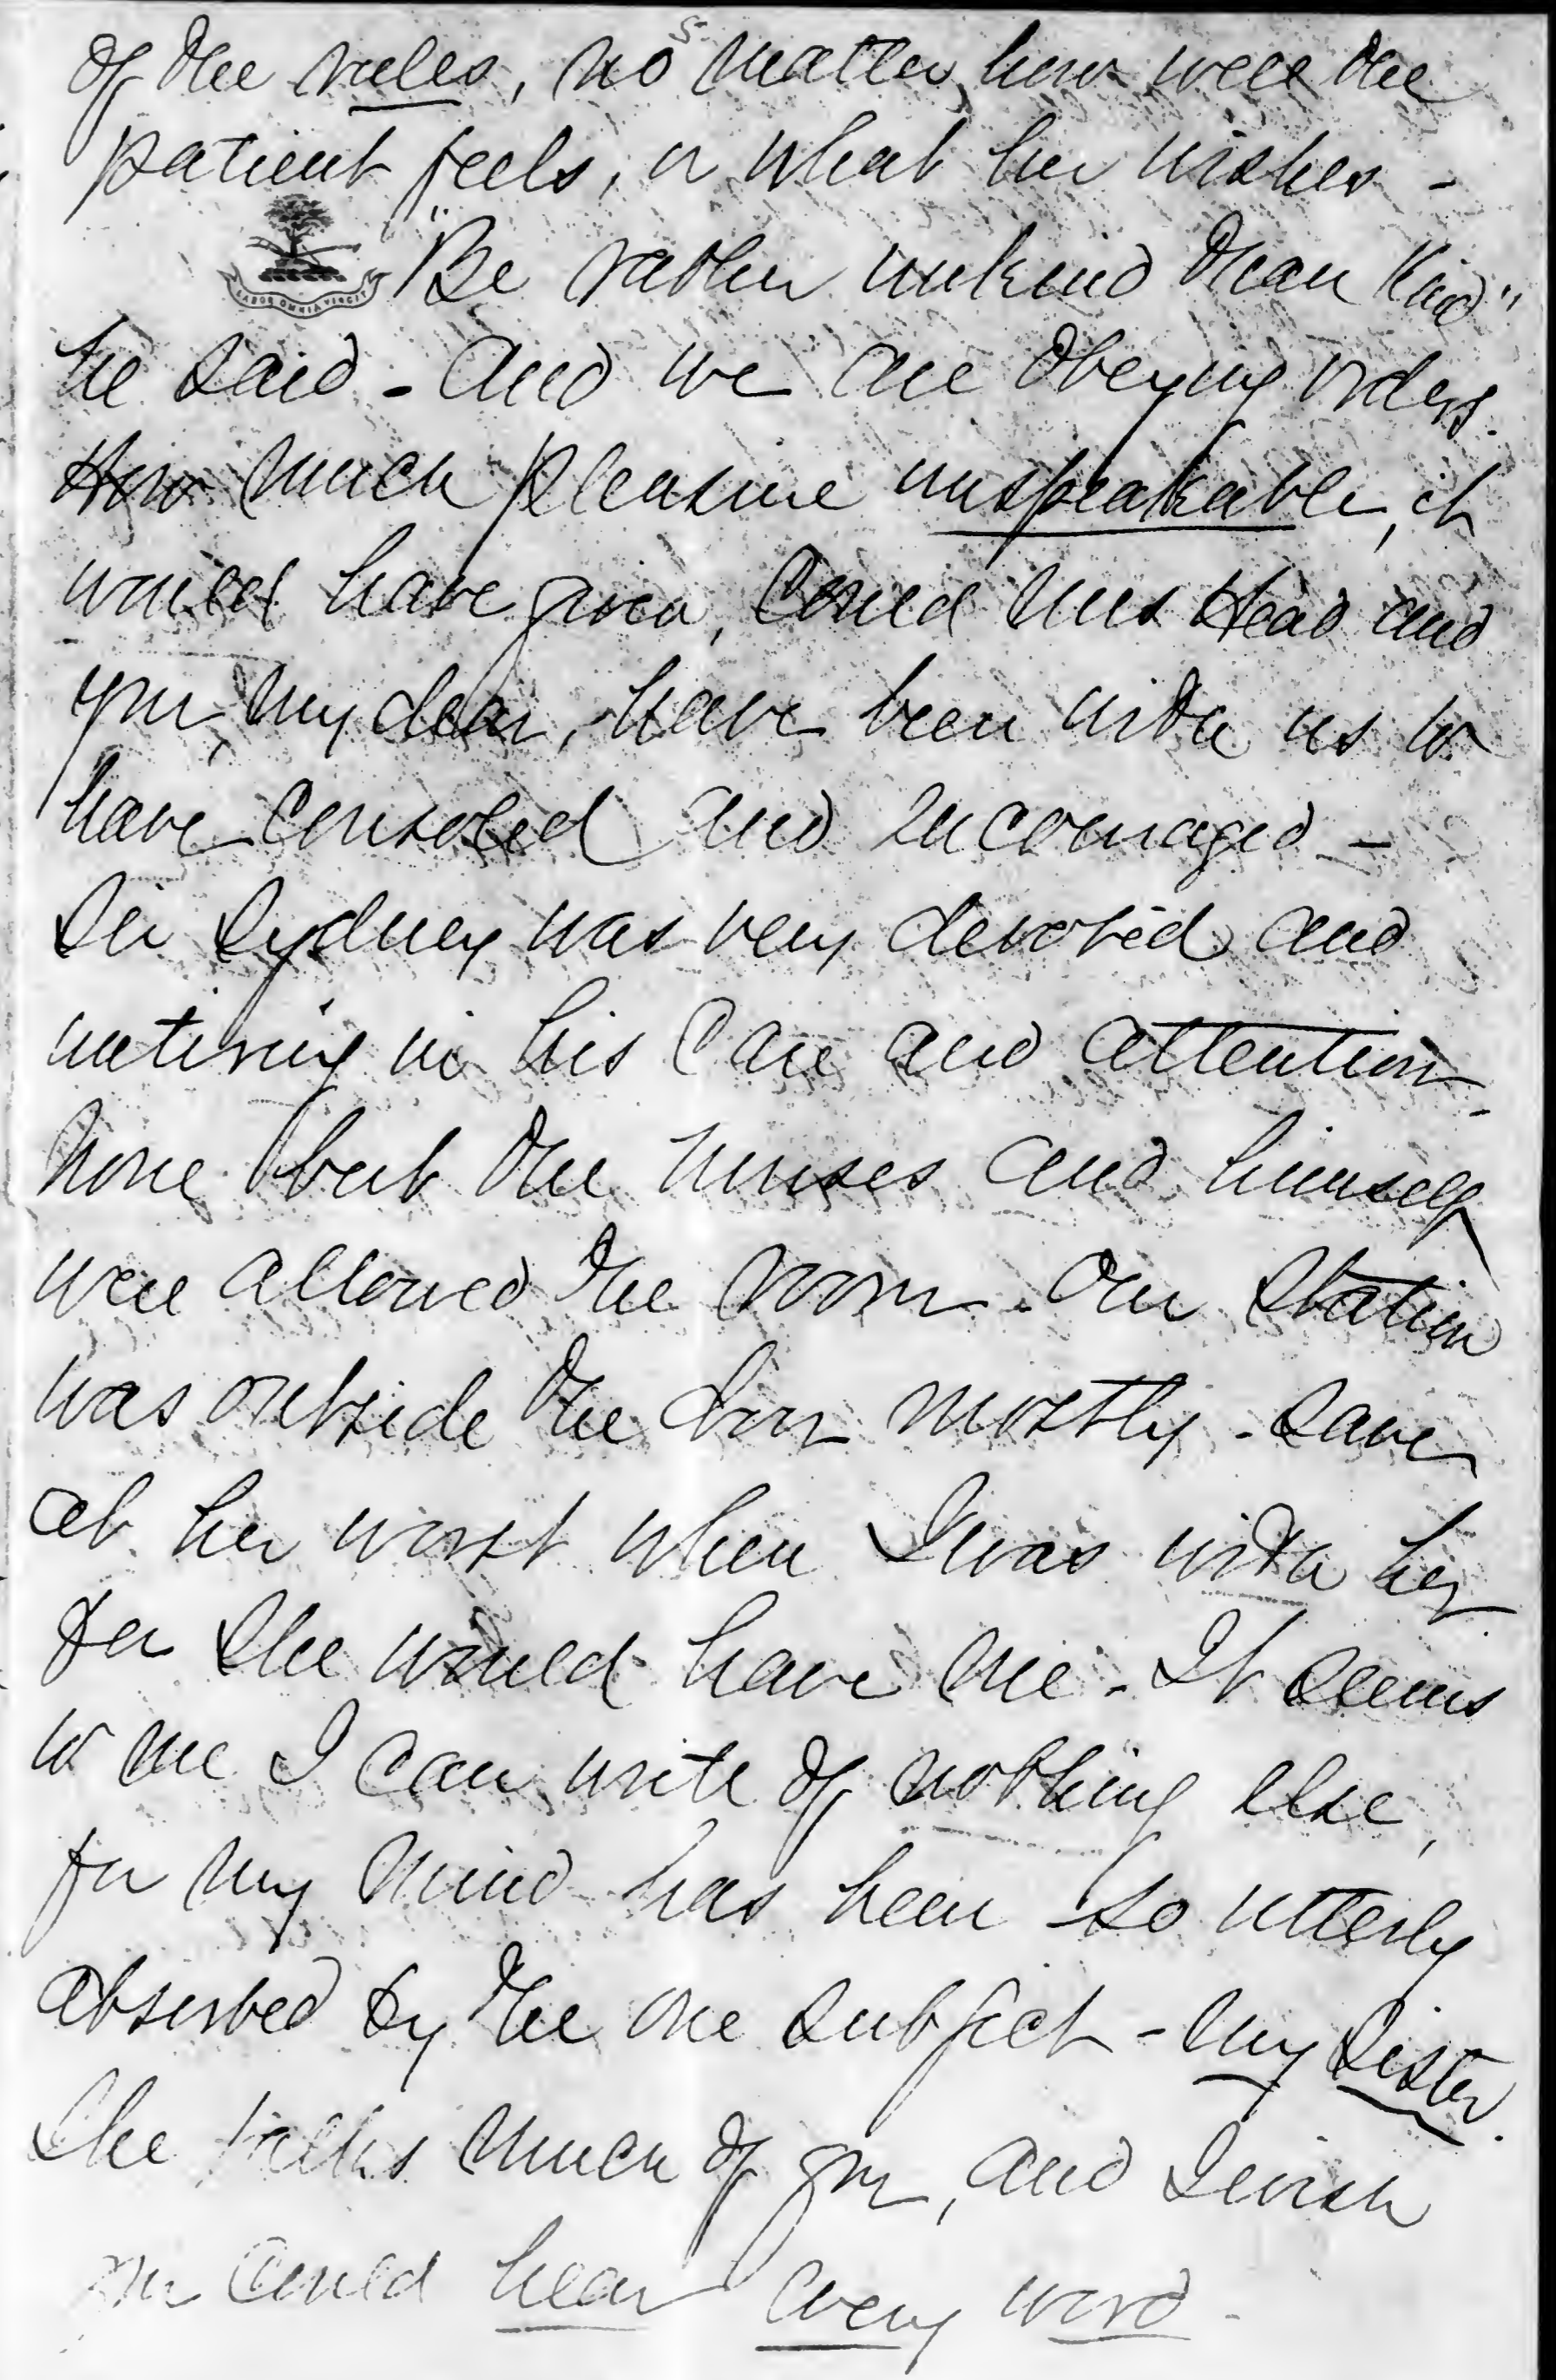 5
of the rules, no matter how well the
patient feels, or what her wishes -
LABOR OMNIA VINCIT
"Be rather unkind than kind"
he said - and we are obeying orders.
How much pleasure unspeakable, it
would have given, could Miss Head and
you, my dear, have been with us to
have consoled and encouraged -
Sir Sydney was very devoted and
untiring in his care and attention.
None but the nurses and himself
were allowed the room - Our station
was outside the door mostly - save
at her worst when I was with her
for she would have me - It seems
to me I can write of nothing else,
for my mind has been so utterly
absorbed by the one subject - my sister.
She talks much of you, and I wish
you could hear every word -